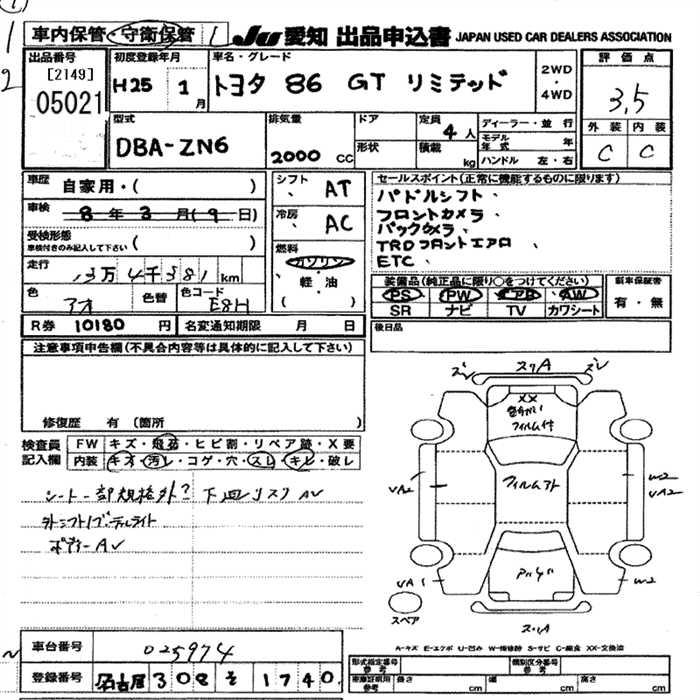 1 車内保管・守衛保管
JU 愛知 出品申込書 JAPAN USED CAR DEALERS ASSOCIATION
2
出品番号
[2149]
05021
初度登録年月
H25 年 1月
車名・グレード
トヨタ 86 GT リミテッド
2WD
・
4WD
評価点
3,5
外装 内装
C C
型式
DBA-ZN6
排気量
2000 CC
ドア
形状
定員 4人
積載 kg
ディーラー・並行
モデル年式 年
ハンドル 左・右
車歴 自家用・( )
車検 8年3月(9日)
受検形態
車検付きのみ記入して下さい ( )
走行 3万4千381km
色 アオ 色替 色コード E8H
R券 10180円 名変通知期限 月 日
シフト AT
冷房 AC
燃料
ガソリン
軽・油
( )
セールスポイント(正常に機能するものに限ります)
パドルシフト、
フロントカメラ、
バックカメラ、
TRDフロントエアロ、
ETC、
装備品(純正品に限り○をつけてください)
PS PW AB AW
SR ナビ TV カワシート
新車保証書
有・無
後日品
注意事項申告欄(不具合内容等は具体的に記入して下さい)
修復歴 有(箇所 )
検査員記入欄
FW キズ・飛石・ヒビ割・リペア跡・X要
内装 キオ・汚レ・コゲ・穴・スレ・キレ・破レ
シート一部規格外? 下回リスリAV
ボディーAV
スリA
XX
フィルム付
フィルムナト
VA2
W2
VA2
VA1
W2
スペア
スリA
A-キズ E-エクボ U-凹み W-補修跡 S-サビ C-腐食 XX-交換済
車台番号 025974
登録番号 名古屋 308 そ 1740
型式指定番号 参考
類別区分番号 参考
車庫証明用 参考 長さ cm 幅 cm 高さ cm